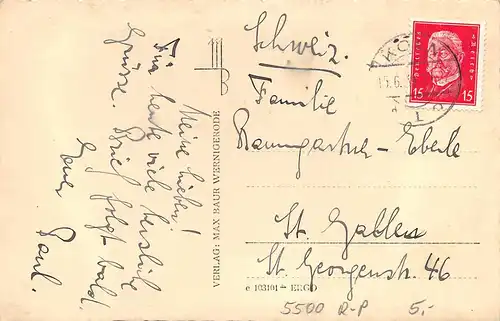 Meine Lieben!
Für heute viele herzliche
Grüsse. Brief folgt bald.
Euer Paul.
VERLAG: MAX BAUR WERNIGERODE
B
Schweiz.
Familie
Baumgartner-Eberle
St. Gallen
St. Georgenstr. 46
c 103101 ERGO
5500 R-P 5,-
Deutsches Reich
15 15
KÖ